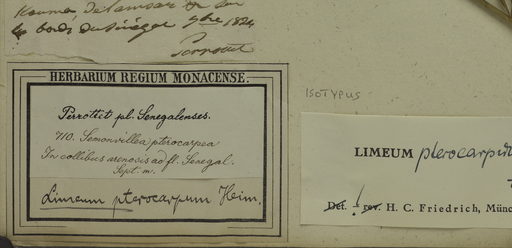 de Lamsar et sur
les bords du Sénégal 9bre 1824
Perrottet
HERBARIUM REGIUM MONACENSE.
Perrottet pl. Senegalenses.
710. Semonvillea pterocarpea
In collibus arenosis ad fl. Senegal.
Sept. m.
Limeum pterocarpum Heim.
ISOTYPUS
LIMEUM pterocarpum
Det. ! rev. H. C. Friedrich, Münc